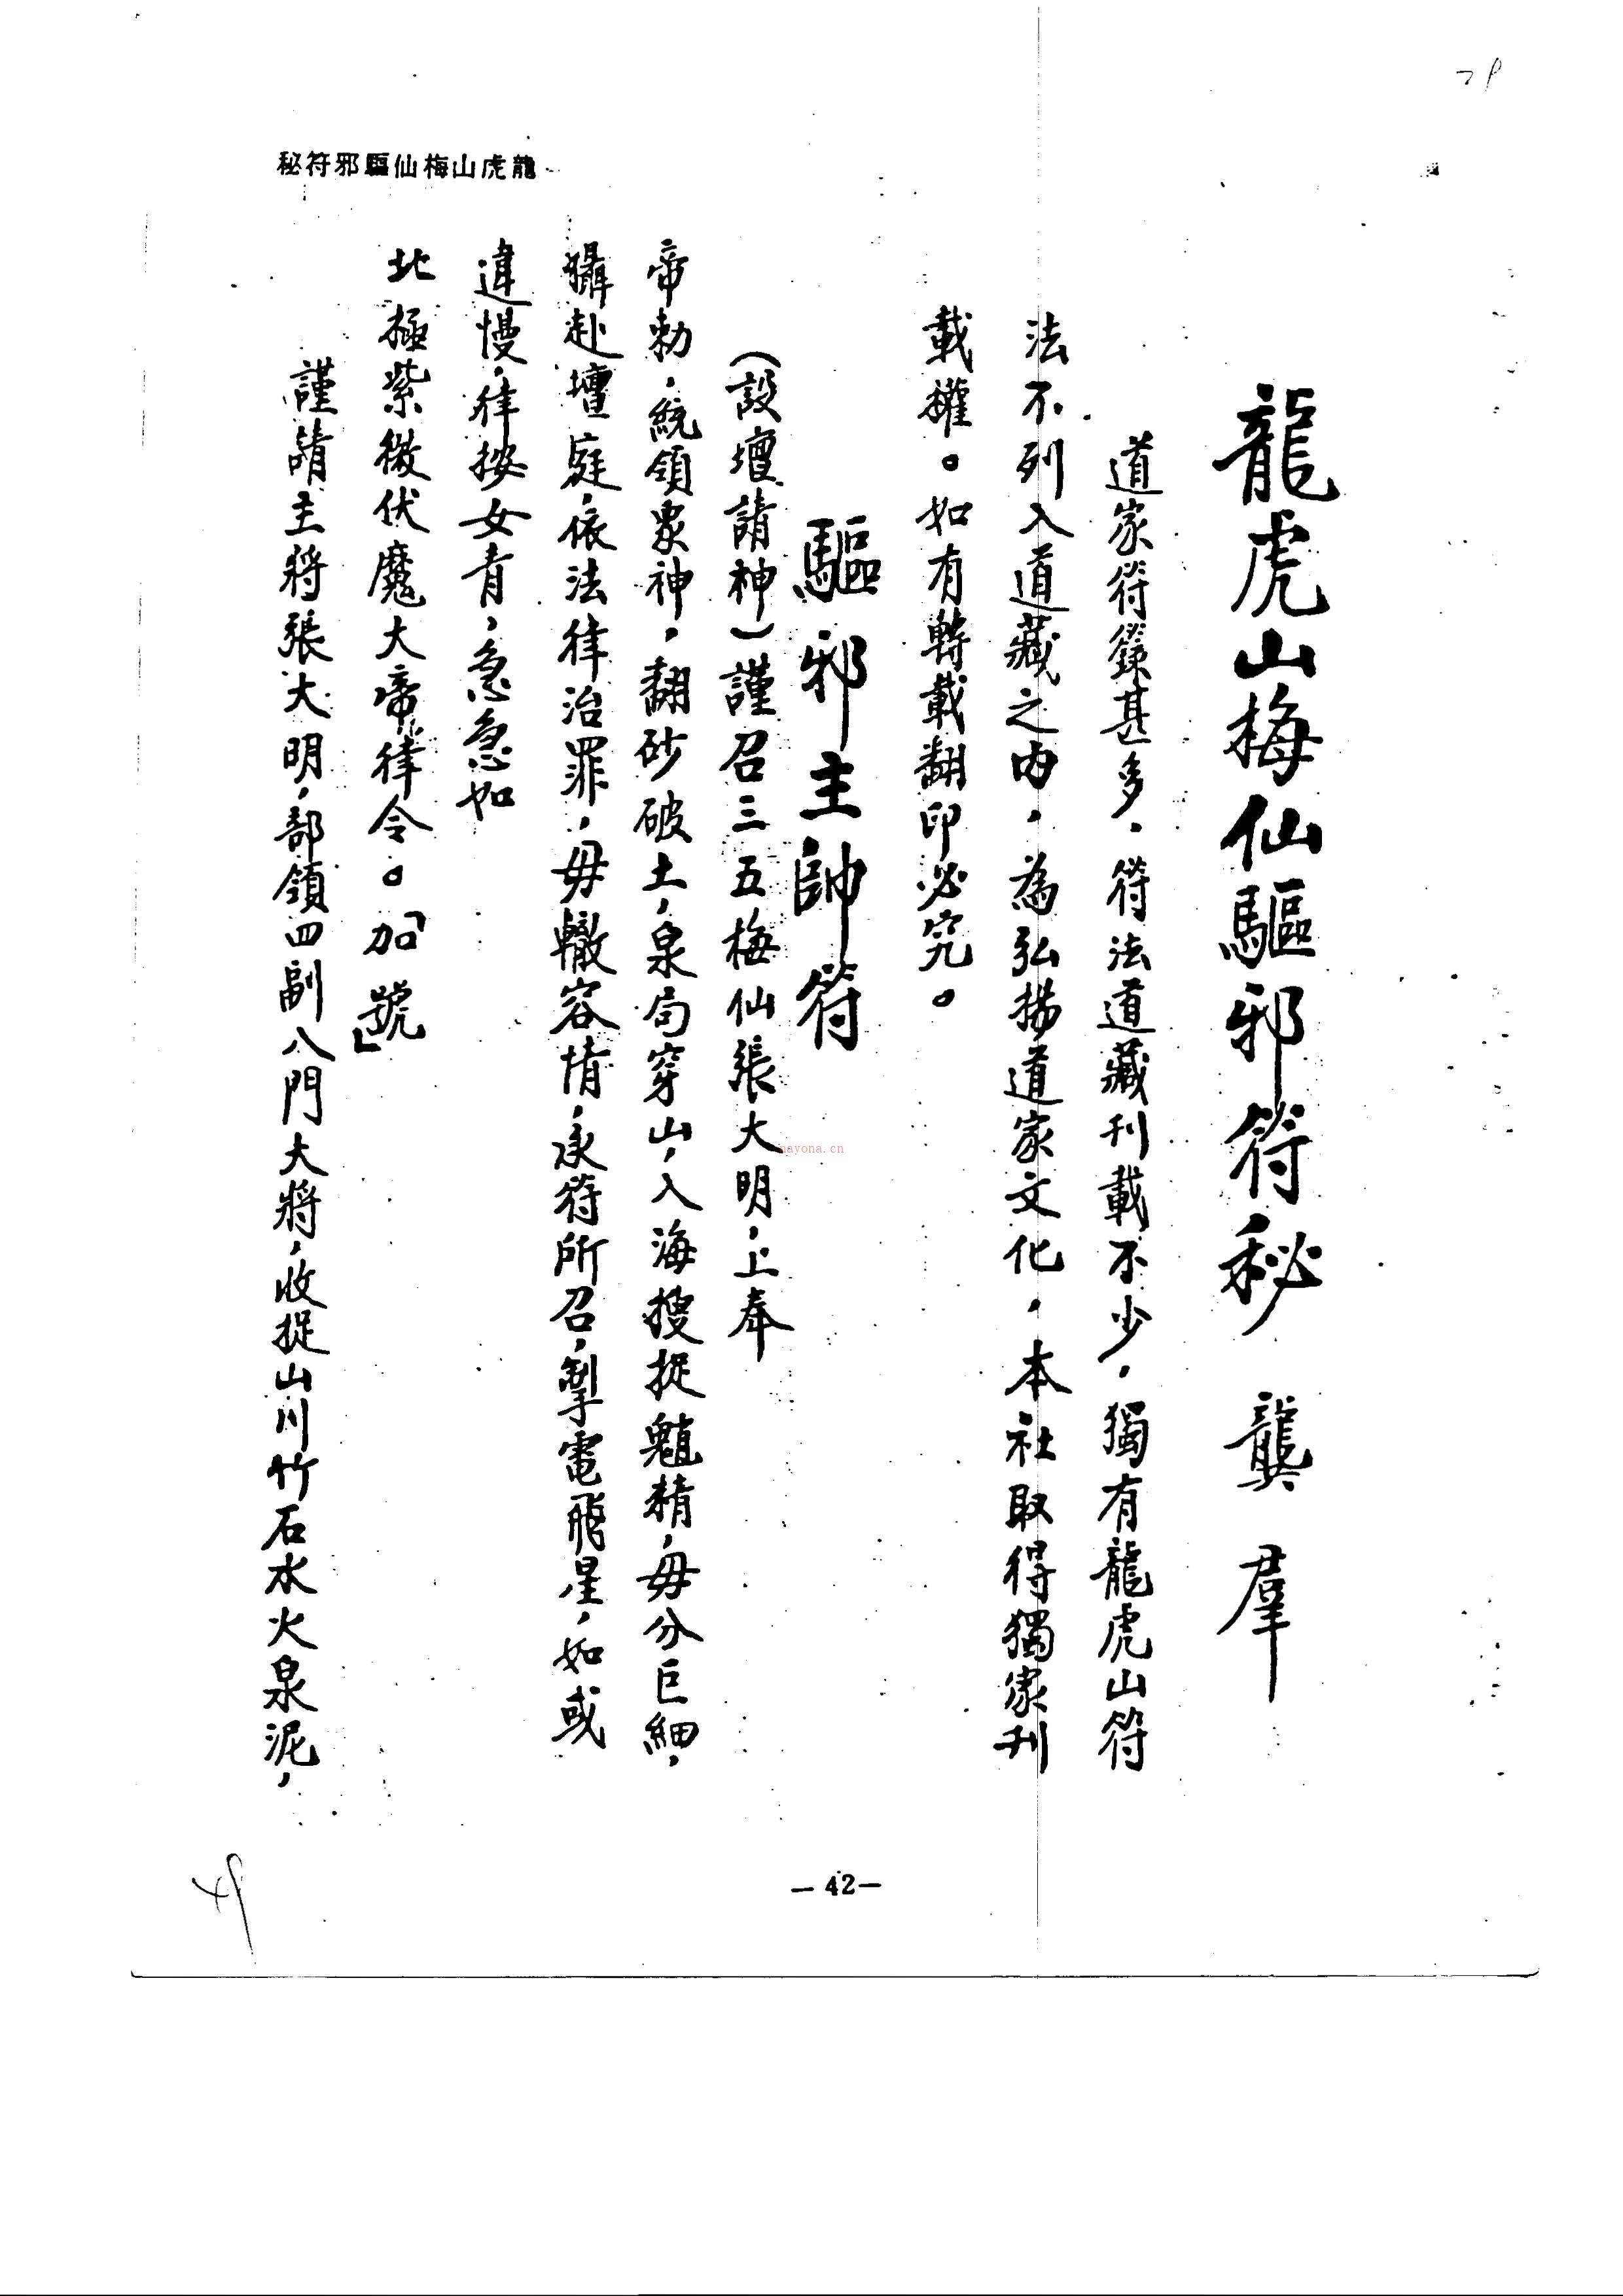 龍虎山梅仙驅邪符秘
龍虎山梅仙驅邪符秘　龔　羣
道家符籙甚多，符法道藏刊載不少，獨有龍虎山符
法不列入道藏之内，為弘揚道家文化，本社取得獨家刊
載權。如有轉載翻印必究。
驅邪主帥符
（設壇請神）謹召三五梅仙張大明，上奉
帝勅，統領眾神，翻砂破土，泉局穿山，入海搜捉魈精，毋分巨細，
攝赴壇庭，依法律治罪，毋轍容情，承符所召，掣電飛星，如或
違慢，律按女青，急急如
北極紫微伏魔大帝律令。「加號」
謹請主將張大明，部領四副八門大將，收捉山川竹石水火泉泥，
nayona.cn
—42—